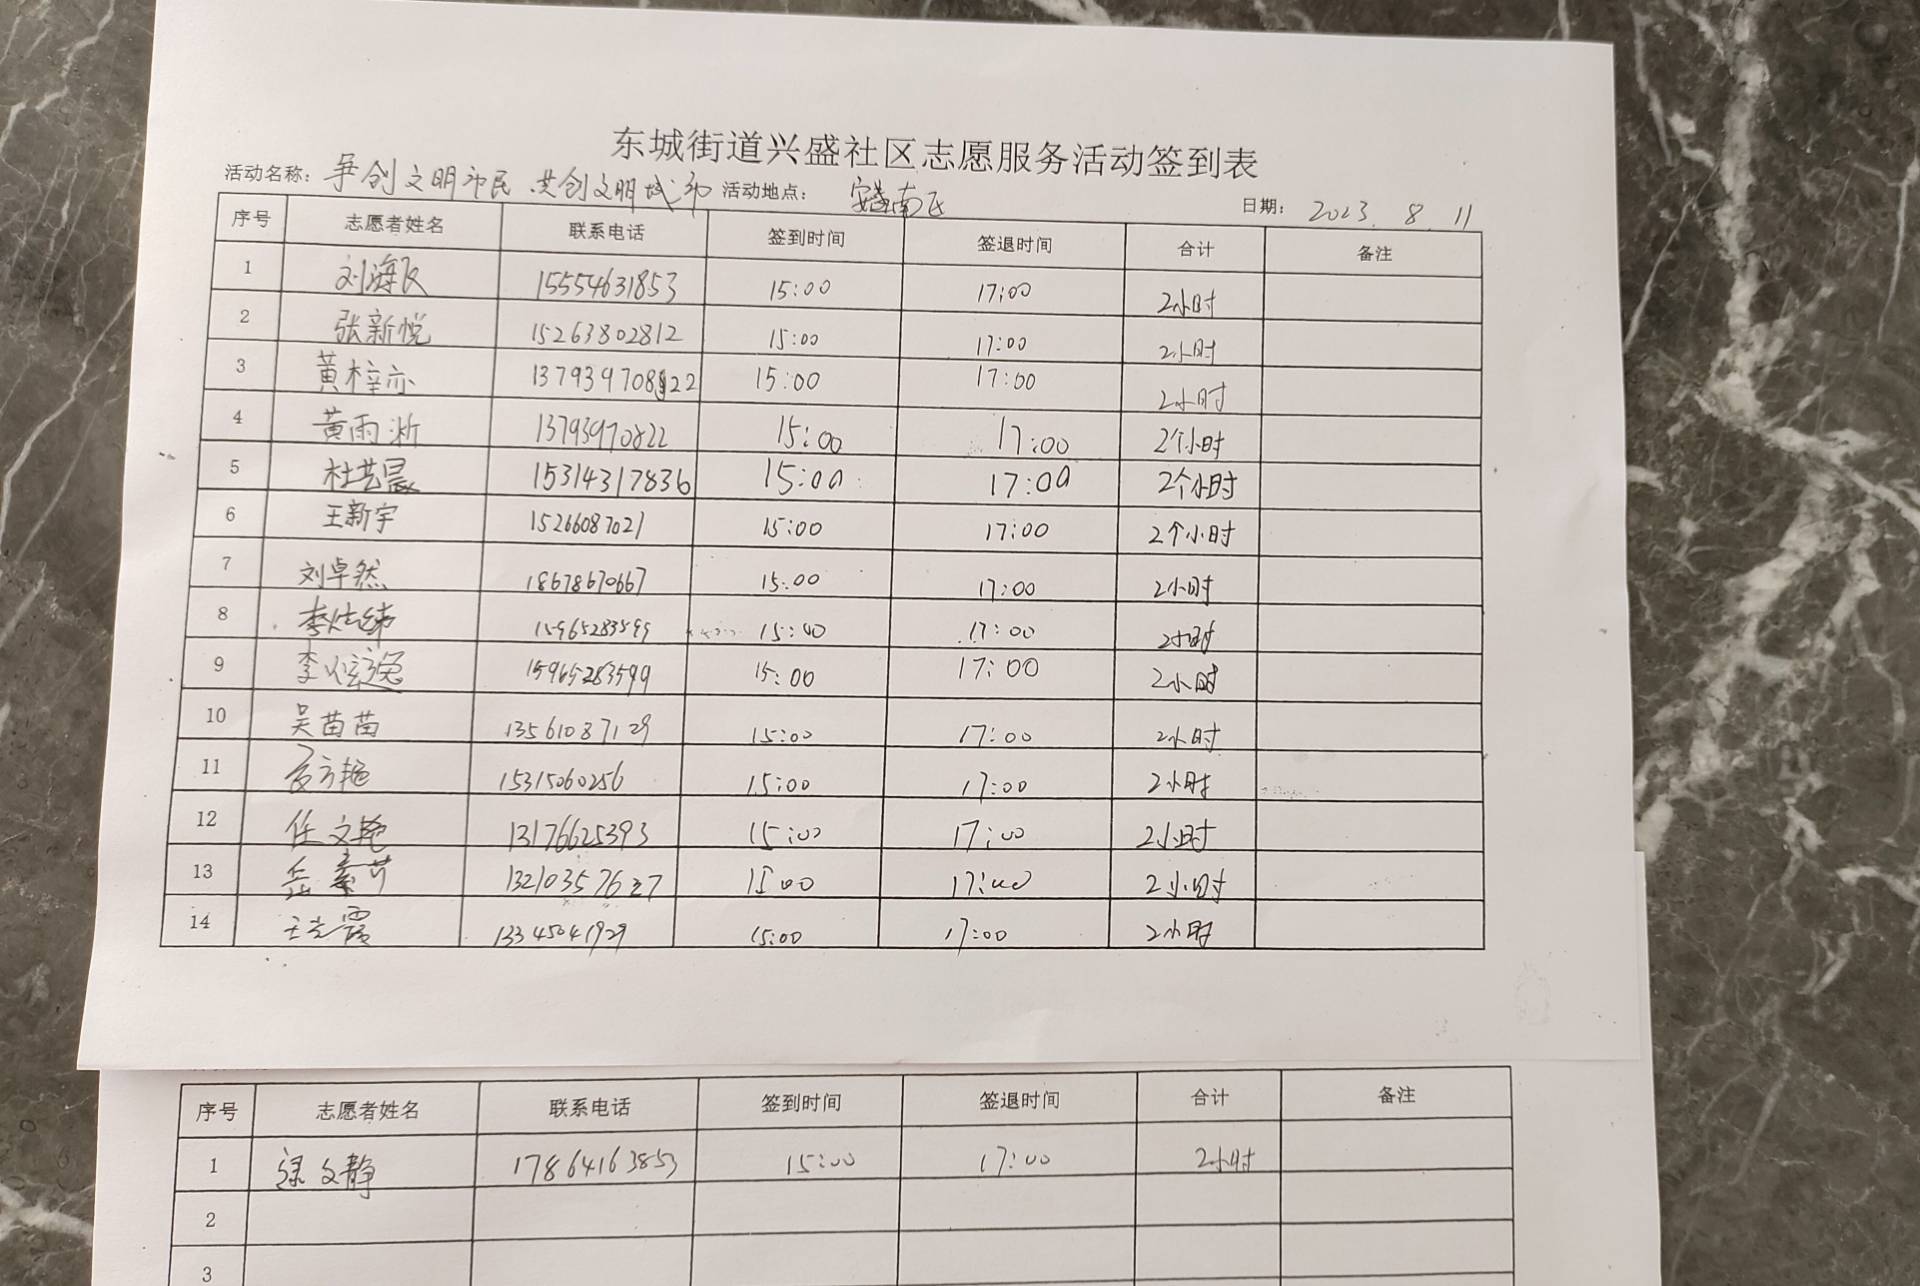 东城街道兴盛社区志愿服务活动签到表
活动名称: 争创文明市民 共创文明城市 活动地点: 安泰南区 日期: 2023. 8. 11
序号 志愿者姓名 联系电话 签到时间 签退时间 合计 备注
1 刘海民 15554631853 15:00 17:00 2小时
2 张新悦 15263802812 15:00 17:00 2小时
3 黄梓亦 15:00 17:00 2小时
4 黄雨浙 13793970822 15:00 17:00 2个小时
5 杜芸晨 15314317836 15:00 17:00 2个小时
6 王新宇 15266087021 15:00 17:00 2个小时
7 刘卓然 18678670667 15:00 17:00 2小时
8 15965283599 15:00 17:00 2小时
9 15965283599 15:00 17:00 2小时
10 吴苗苗 13561087129 15:00 17:00 2小时
11 15315060256 15:00 17:00 2小时
12 任文艳 13176625393 15:00 17:00 2小时
13 13210357627 15:00 17:00 2小时
14 13345041929 15:00 17:00 2小时
序号 志愿者姓名 联系电话 签到时间 签退时间 合计 备注
1 徐文静 17864163853 15:00 17:00 2小时
2
3